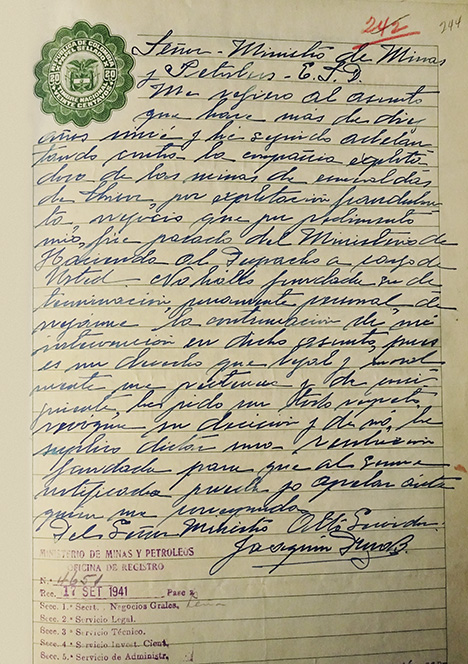 242
244
REPUBLICA DE COLOMBIA
20 20
Señor Ministro de Minas
y Petróleos - E. S. D.
Me refiero al asunto
que hace más de diez
años inicié y he seguido adelan
tando contra la compañía explota
dora de las minas de esmeraldas
de Chivor, por explotación fraudulen
ta, negocio que por pedimento
mío, fue pasado del Ministerio de
Hacienda al Despacho a cargo de
Usted. No hallo fundada su de
terminación puramente personal de
negarme la continuación de mi
intervención en dicho asunto, pues
es un derecho que legal y moral
mente me pertenece y de consi
guiente, le pido con todo respeto
revoque su decisión y de no, le
suplico dictar una resolución
fundada para que al serme
notificada pueda yo apelar ante
quien me corresponda.
Del Señor Ministro Atto Servidor
Joaquín
MINISTERIO DE MINAS Y PETROLEOS
OFICINA DE REGISTRO
N.º 4651
Rec. 17 SET 1941 Pase a
Secc. 1.ª Secrt. Negocios Grales,
Secc. 2.ª Servicio Legal.
Secc. 3.ª Servicio Técnico.
Secc. 4.ª Servicio Invest. Cient.
Secc. 5.ª Servicio de Administr,